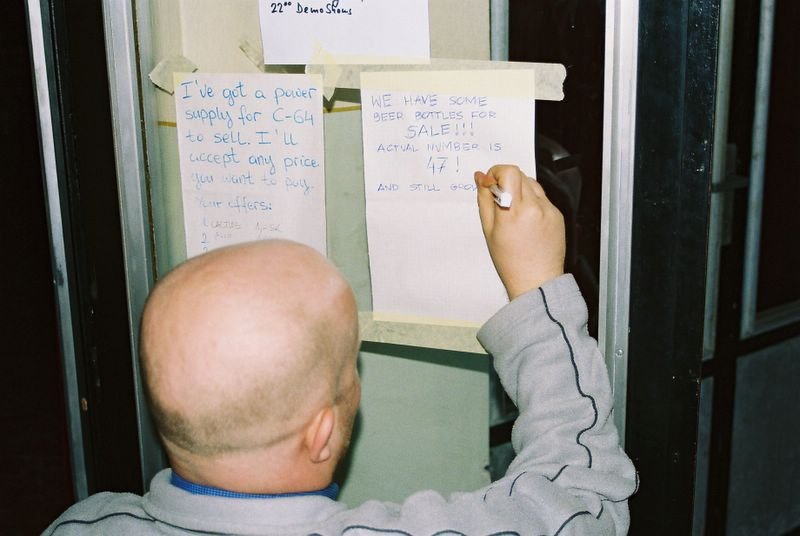 22⁰⁰ DemoShows
I've got a power
supply for C-64
to sell. I'll
accept any price
you want to pay.
Your offers:
1 CACTUS 1,-SK
2
WE HAVE SOME
BEER BOTTLES FOR
SALE!!!
ACTUAL NUMBER IS
47!
AND STILL